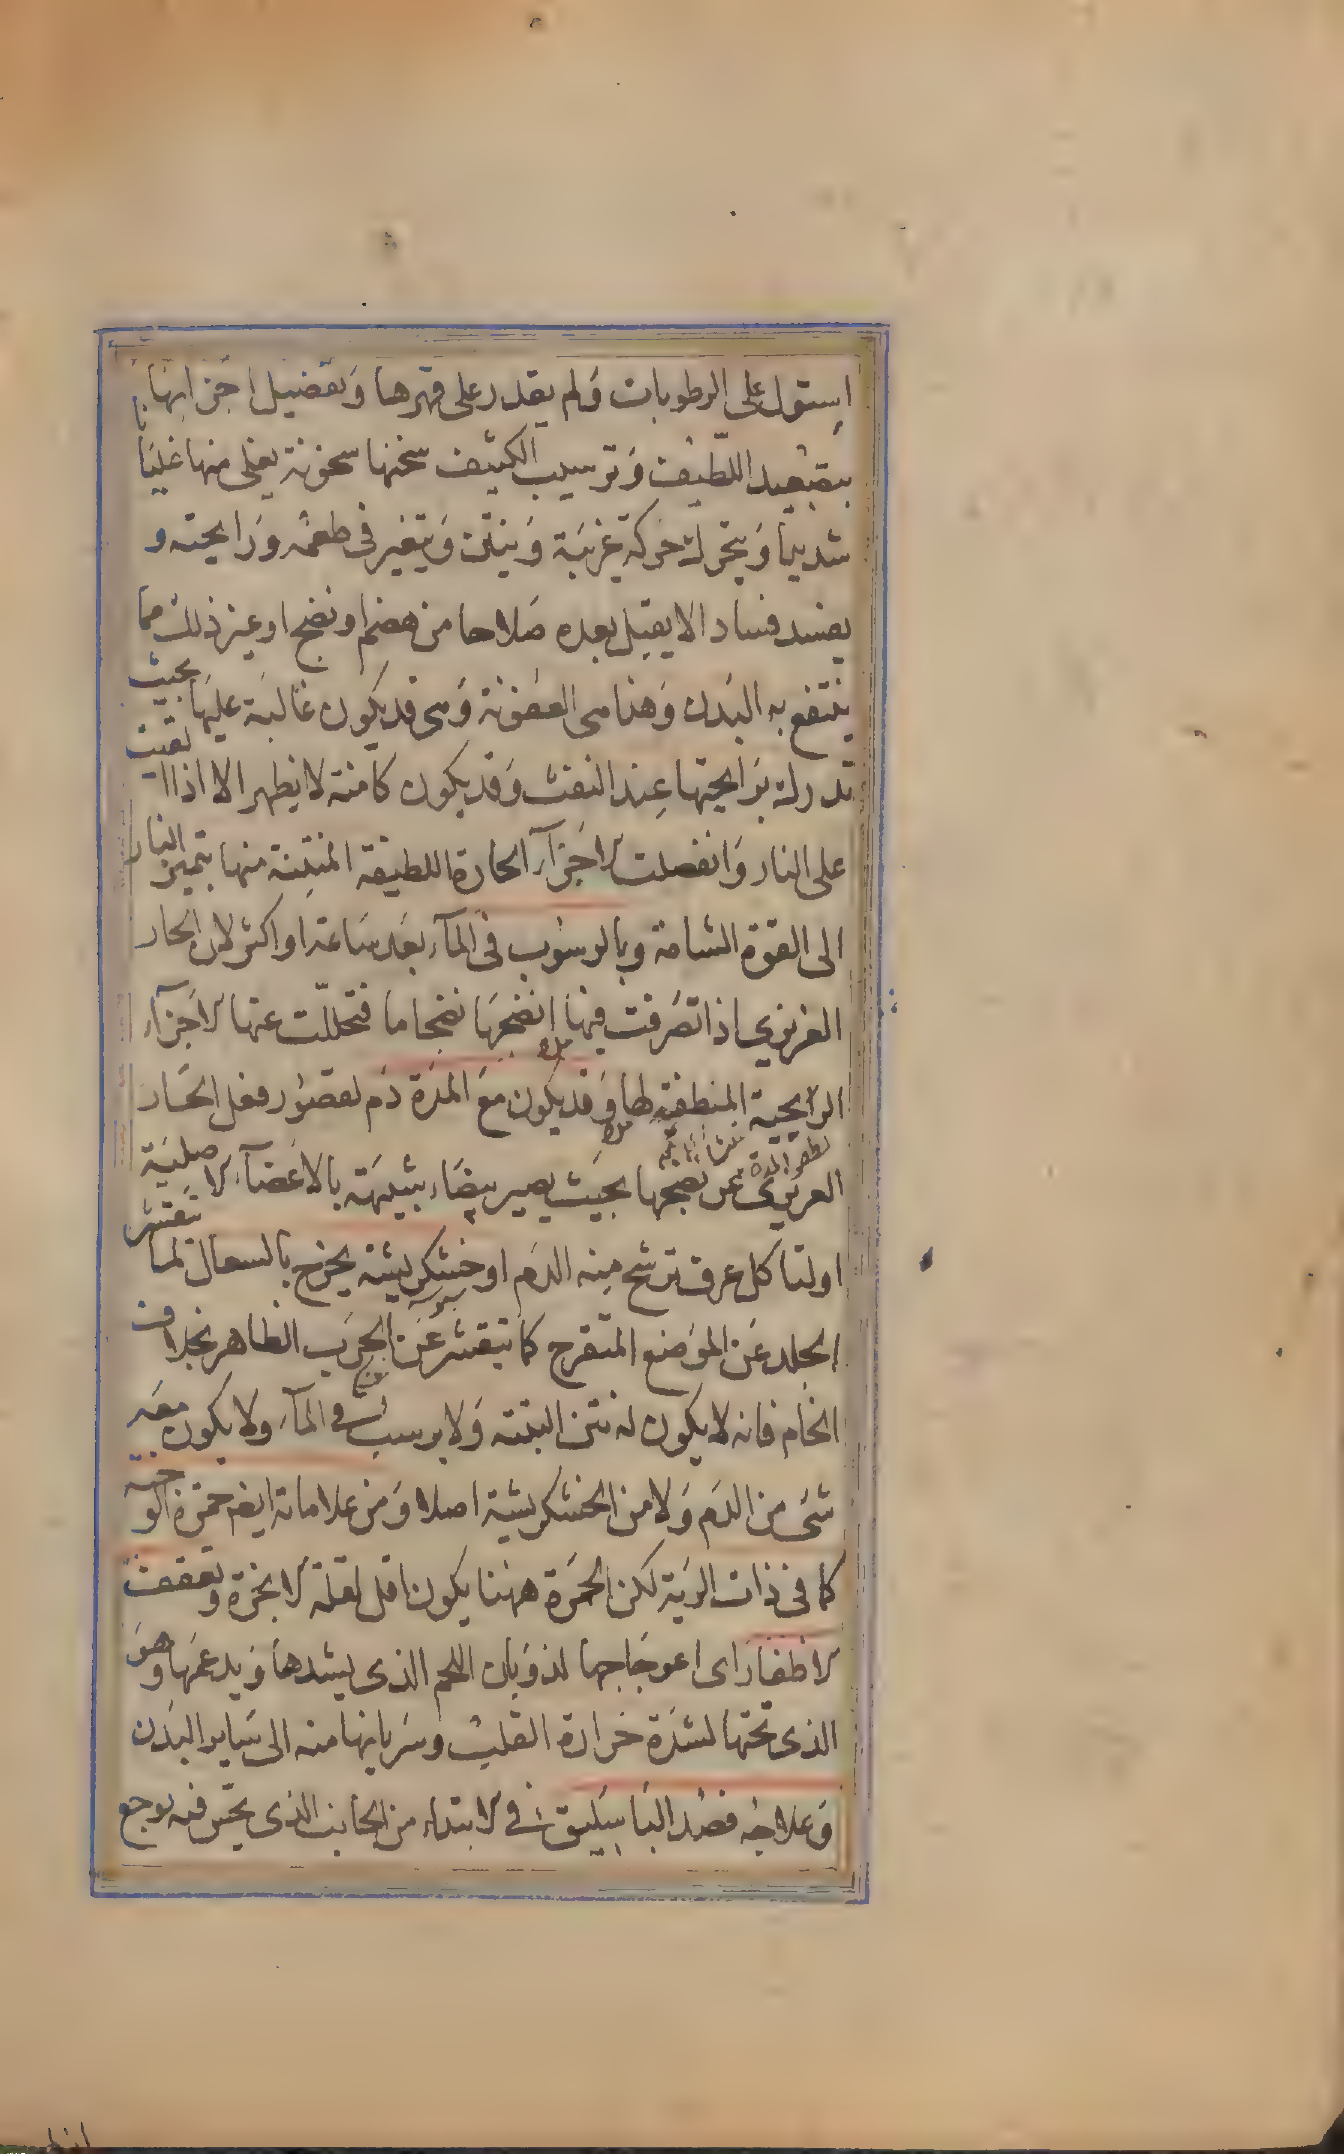 استول على الرطوبات ولم يقدر على قهرها وتفصيل اجزايها
بتصعيد اللطيف وترسيب الكثيف سخنها سخونة يغلى منها غليانا
شديدا ويتحرك حركة غريبة وينتن ويتغير فى طعمه ورايحته و
يفسد فسادا لا يقبل بعده صلاحا من هضم او نضج او غير ذلك مما
ينتفع به البدن وهذا هى العفونة وهى قد يكون غالبة عليها بحيث
تدرك برايحتها عند النفث وقد يكون كامنة لا يظهر الا اذا القيت
على النار وانفصلت الاجزآء الحارة اللطيفة المنتنة منها بتمييز النار
الى القوة الشامة وبالرسوب فى المآء بعد ساعة او اكثر لان الحار
الغريزي اذا تصرفت فيها انضجها نضجا ما فتحللت عنها الاجزآء
الرايحية المنطفية لها وقد يكون مع المدة دم لقصور فعل الحار
الغريزى عن نضجها بحيث يصير بيضاء شبيهة بالاعضآء الاصلية
اولتاكل عرق ترشح منه الدم او خشكريشة يخرج بالسعال لما تنقشر
الجلد عن الموضع المتقرح كما تنقشر عن الجرب الظاهر بخلاف
الخام فانه لا يكون له نتن البتته ولا يرسب فى المآء ولا يكون معه
شى من الدم ولا من الخشكريشة اصلا ومن علاماته ايضا حمرة الوجنة
كما فى ذات الرية لكن الحمرة ههنا يكون اقل لقلة الابخرة وتعقف
الاظفار اى اعوجاجها لذوبان اللحم الذى يشدها ويدعمها وهو
الذى تحتها لشدة حرارة القلب وسريانها منه الى ساير البدن
وعلاجه فصد الباسليق فى الابتداء من الجانب الذى يحس فيه بوجع